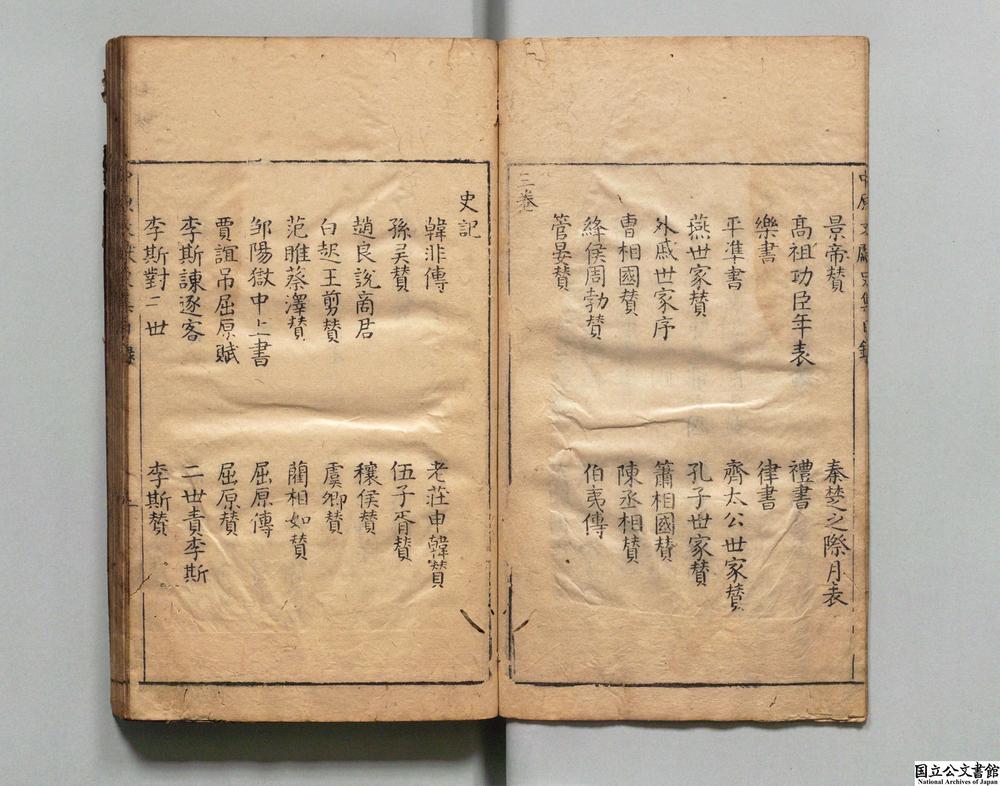 景帝賛 秦楚之際月表
髙祖功臣年表 禮書
樂書 律書
平準書 齊太公世家賛
燕世家賛 孔子世家賛
外戚世家序 蕭相國賛
曹相國賛 陳丞相賛
絳侯周勃賛 伯夷傳
管晏賛
三卷
史記
韓非傳 老莊申韓賛
孫吳賛 伍子胥賛
趙良說商君 穰侯賛
白起王剪賛 虞卿賛
范睢蔡澤賛 藺相如賛
邹陽獄中上書 屈原傳
賈誼吊屈原賦 屈原賛
李斯諫逐客 二世責李斯
李斯對二世 李斯賛
国立公文書館
National Archives of Japan